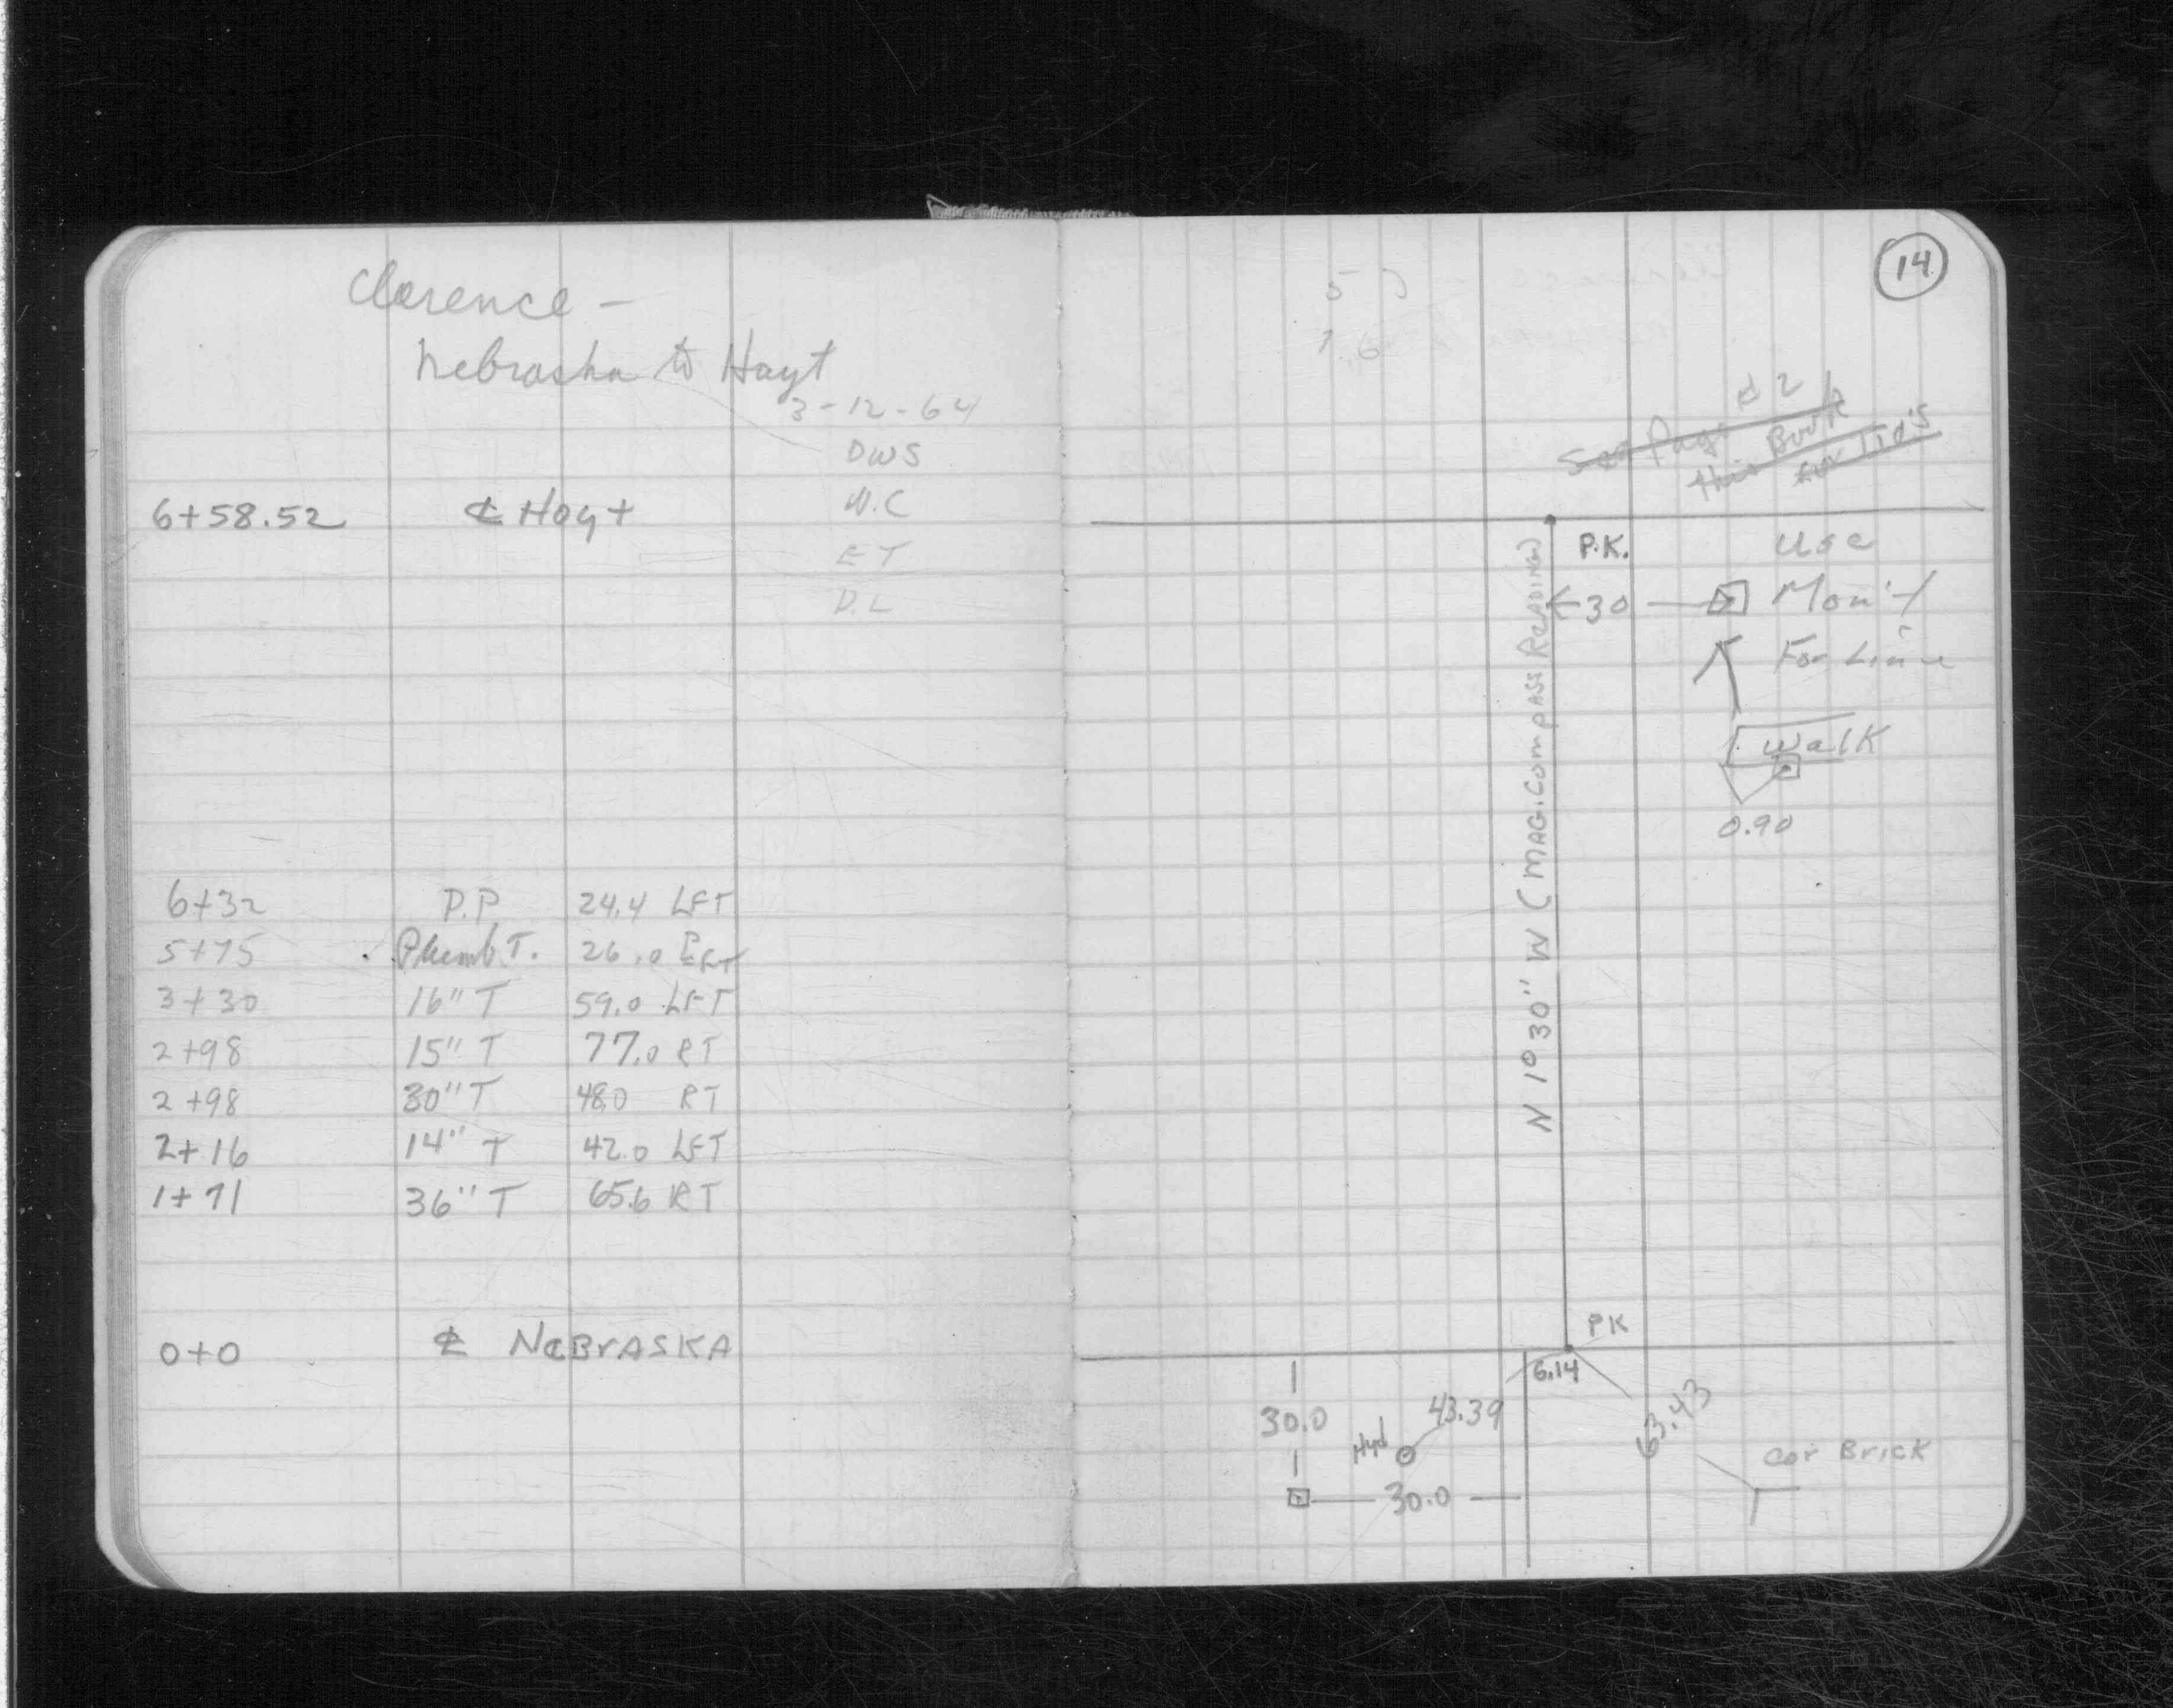 Clarence -
Nebraska to Hoyt
3-12-64
DWS
W.C
ET
D.L
6+58.52 ℄ Hoyt
6+32 P.P. 24.4 LFT
5+75 Plumb T. 26.0
3+30 16" T 59.0 LFT
2+98 15" T 77.0 RT
2+98 30" T 48.0 RT
2+16 14" T 42.0 LFT
1+71 36" T 65.6 RT
0+0 ℄ NEBRASKA
14
See Page # 2
this Book
for Ties
P.K.
Use
30
Mon't
For Line
Walk
0.90
N 1° 30" W (MAG. COMPASS READING)
PK
6.14
30.0
43.39
Hyd
63.43
Cor Brick
30.0